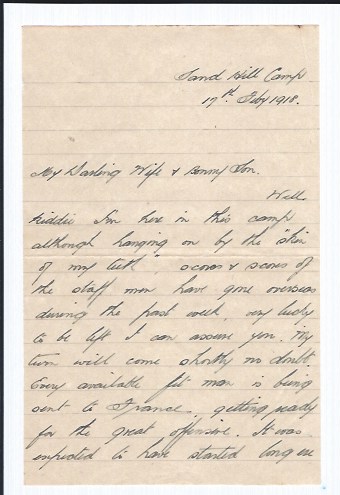 Sand Hill Camp
17th Feby 1918.
My Darling Wife & Bonny Son.
Well
Kiddie I'm here in this camp
although hanging on by the "skin
of my teeth", scores & scores of
the staff men have gone overseas
during the past week, very lucky
to be left I can assure you. My
turn will come shortly no doubt.
Every available fit man is being
sent to France, getting ready
for the great offensive. It was
expected to have started long ere